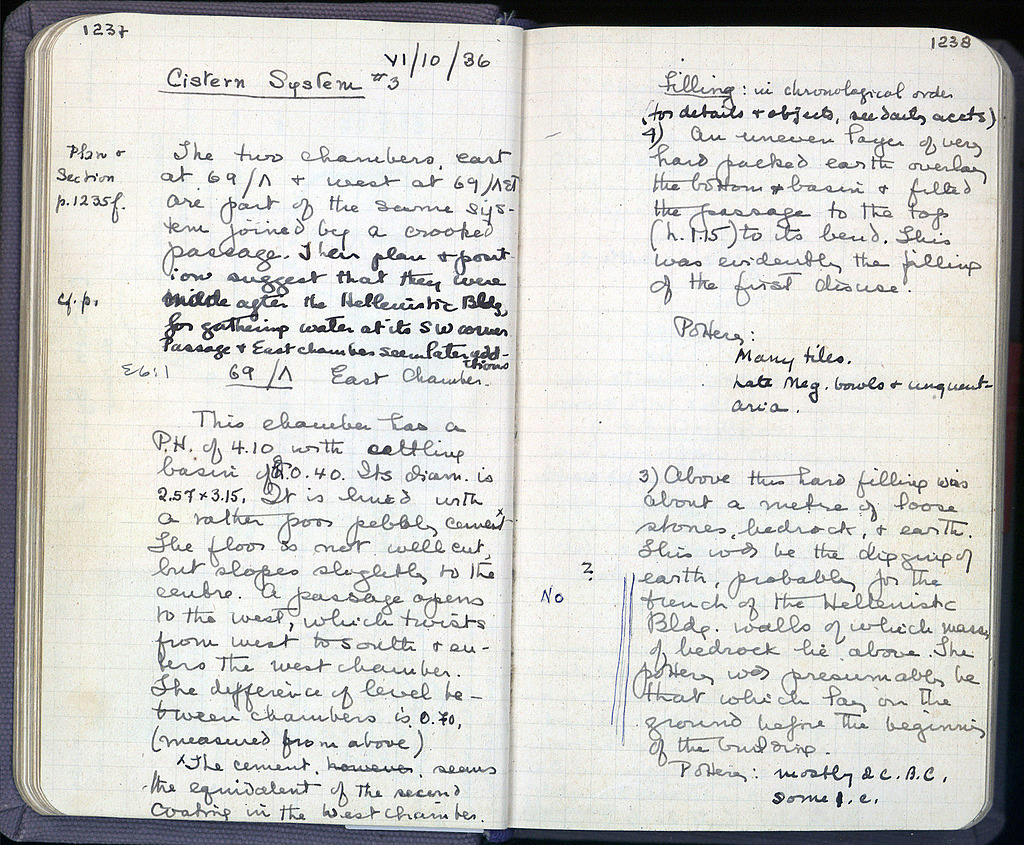 1237
VI/10/36
Cistern System #3
Plan &
Section
p.1235f.
The two chambers, east
at 69/Λ & west at 69/ΛΣΤ
are part of the same sys-
tem joined by a crooked
passage. Their plan & posit-
ion suggest that they were
cf. p.
made after the Hellenistic Bldg,
for gathering water at its SW corner
Passage & East chamber seem later add-
itions
E6:1 69/Λ East Chamber.
This chamber has a
P.H. of 4.10 with settling
basin of 0.40. Its diam. is
2.57 x 3.15. It is lined with
a rather poor pebbly cement x
The floor is not well cut,
but slopes slightly to the
centre. A passage opens
to the west, which twists
from west to south & en-
ters the west chamber.
The difference of level be-
tween chambers is 0.70,
(measured from above)
x The cement, however, seems
the equivalent of the second
coating in the west chamber.
1238
Filling: in chronological order
(for details & objects, see daily accts)
4) An uneven layer of very
hard packed earth overlay
the bottom & basin & filled
the passage to the top
(h. 1.15) to its bend. This
was evidently the filling
of the first disuse.
Pottery:
Many tiles.
Late Meg. bowls & unguent-
aria.
3) Above this hard filling was
about a metre of loose
stones, bedrock, & earth.
This wd be the digging of
? earth, probably for the
No trench of the Hellenistic
Bldg. walls of which mass
of bedrock lie above. The
pottery wd presumably be
that which lay on the
ground before the beginning
of the building.
Pottery: mostly 2 c. B.C.
some 1. c.